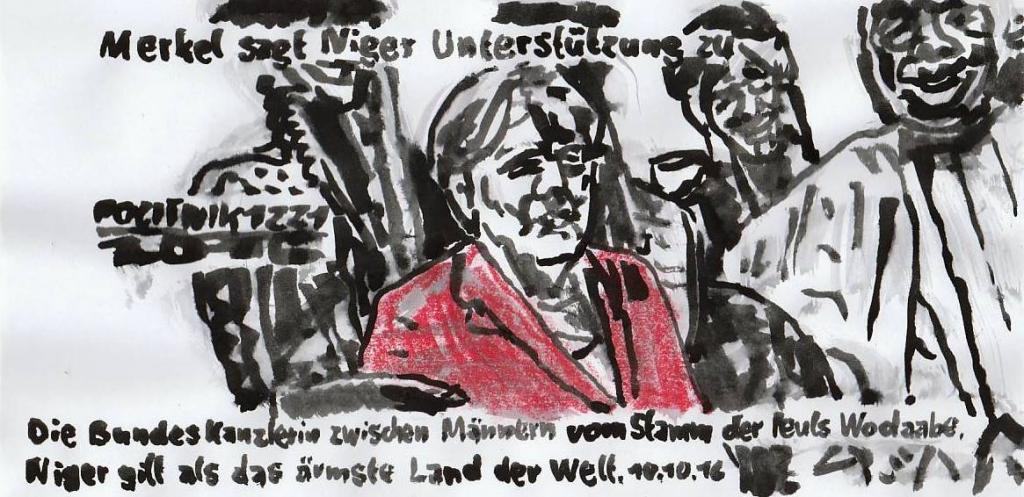 Merkel sagt Niger Unterstützung zu
POLITNIK1221
2016
Die Bundeskanzlerin zwischen Männern vom Stamm der Peuls Wodaabe.
Niger gilt als das ärmste Land der Welt. 10.10.16